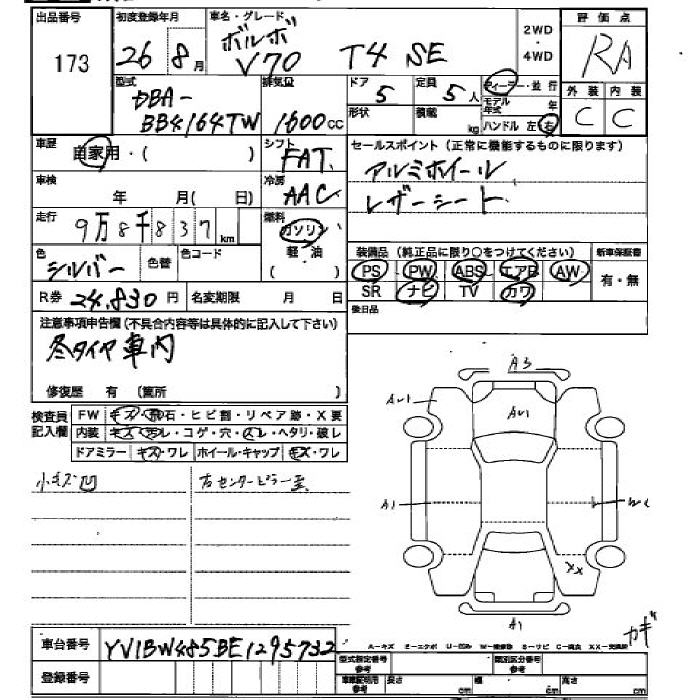 出品番号 初度登録年月 車名・グレード 2WD・4WD 評価点
173 26 8月 ボルボ V70 T4 SE RA
型式 排気量 ドア 定員 ディーラー・並行 外装 内装
DBA-BB4164TW 1600cc 5 5人 モデル年式 年 C C
形状 積載 kg ハンドル 左・右
車歴 自家用・( ) シフト FAT. セールスポイント(正常に機能するものに限ります)
車検 年 月( 日) 冷房 AAC アルミホイール
走行 9万8千837km 燃料 ガソリン レザーシート
色 シルバー 色替 色コード 軽・油 ( ) 装備品(純正品に限り○をつけてください) 新車保証書
PS PW ABS エアB AW 有・無
R券 24,830円 名変期限 月 日 SR ナビ TV カワ
注意事項申告欄(不具合内容等は具体的に記入して下さい) 後日品
冬タイヤ車内
修復歴 有 (箇所 )
検査員記入欄 FW キズ・飛石・ヒビ割・リペア跡・X要
内装 キズ・汚レ・コゲ・穴・スレ・ヘタリ・破レ
ドアミラー キズ・ワレ ホイール・キャップ キズ・ワレ
小キズ凹 右センターピラー
A3
AU1 AU1
A1
XX
A1
カギ
車台番号 YV1BW485BE1295732
A-キズ
登録番号 型式指定番号 参考 類別区分番号 参考
車庫証明用 参考 長さ cm 幅 cm 高さ cm